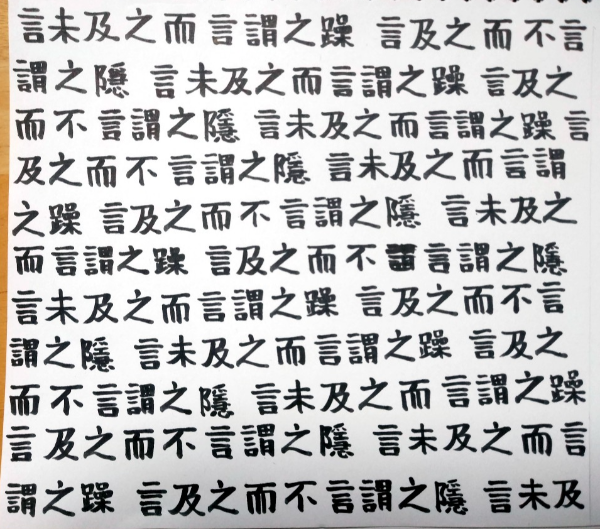 言未及之而言謂之躁 言及之而不言
謂之隱 言未及之而言謂之躁 言及之
而不言謂之隱 言未及之而言謂之躁 言
及之而不言謂之隱 言未及之而言謂
之躁 言及之而不言謂之隱 言未及之
而言謂之躁 言及之而不言謂之隱
言未及之而言謂之躁 言及之而不言
謂之隱 言未及之而言謂之躁 言及之
而不言謂之隱 言未及之而言謂之躁
言及之而不言謂之隱 言未及之而言
謂之躁 言及之而不言謂之隱 言未及